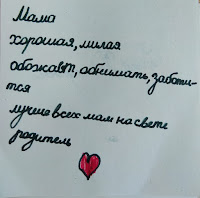 Мама
хорошая, милая
обожают, обнимать, заботи-
тся
лучше всех мам на свете
родитель